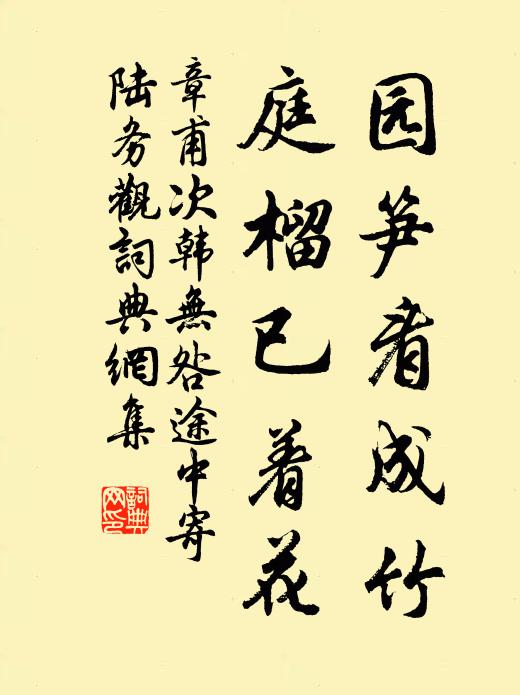 园笋看成竹
庭榴已着花
章甫次韩無咎途中寄
陆务觀詞典網集
詞典网印